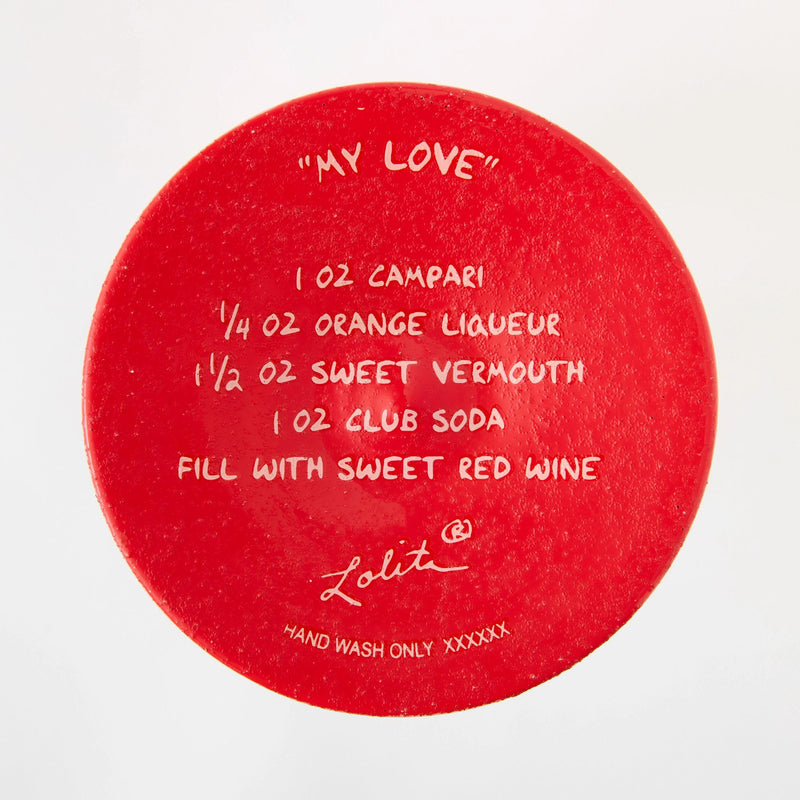 "MY LOVE"
1 OZ CAMPARI
1/4 OZ ORANGE LIQUEUR
1 1/2 OZ SWEET VERMOUTH
1 OZ CLUB SODA
FILL WITH SWEET RED WINE
Lolita®
HAND WASH ONLY XXXXXX